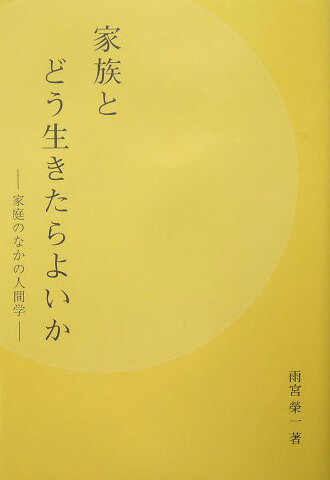 家族と
どう生きたらよいか
―家庭のなかの人間学―
雨宮榮一著